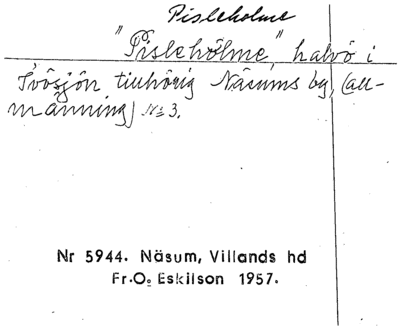 Pisleholme
"Pisleholme", halvö i
Ivösjön tillhörig Näsums by, (all-
männing) № 3.
Nr 5944. Näsum, Villands hd
Fr.O. Eskilson 1957.